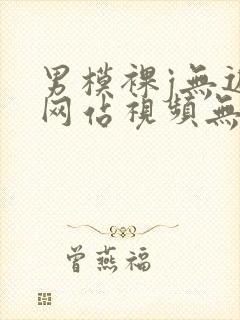 男模裸j無遮
网佔視頻無
曾燕福